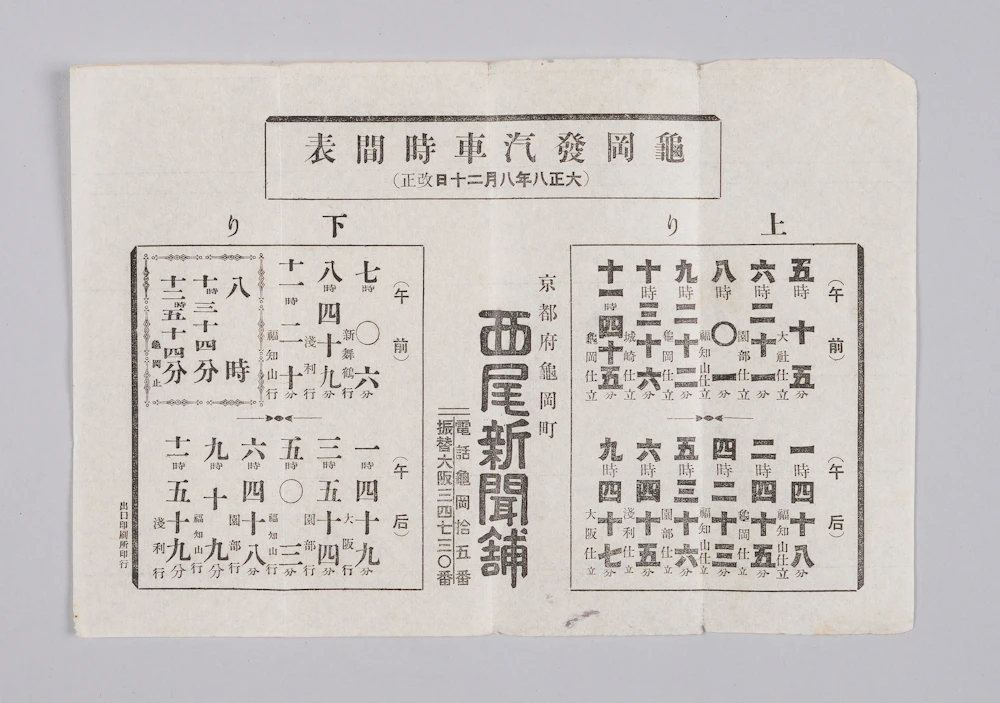 龜岡發汽車時間表
(大正八年八月二十日改正)
上り
(午前)
五時十五分
大社仕立
六時二十一分
園部仕立
八時〇一分
福知山仕立
九時二十二分
龜岡仕立
十時三十六分
城崎仕立
十一時四十五分
龜岡仕立
(午后)
一時四十八分
福知山仕立
二時四十五分
龜岡仕立
四時二十三分
福知山仕立
五時三十六分
園部仕立
六時四十五分
淺利仕立
九時四十七分
大阪仕立
京都府龜岡町
西尾新聞舖
電話龜岡拾五番
振替大阪三四七三〇番
下り
(午前)
七時〇六分
新舞鶴行
八時四十九分
淺利行
十一時二十分
福知山行
八時
十時三十四分
十二時五十四分
龜岡止
(午后)
一時四十九分
大阪行
三時五十四分
園部行
五時〇三分
福知山行
六時四十八分
園部行
九時十九分
福知山行
十一時五十九分
淺利行
出口印刷所印行